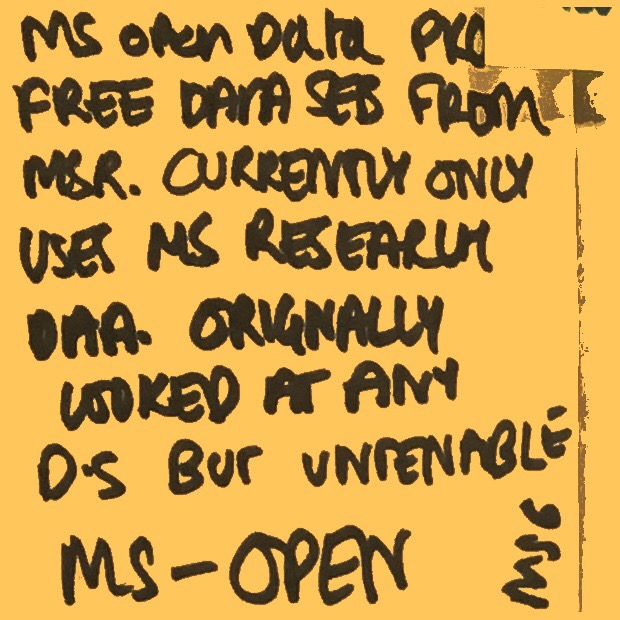 MS open Data
FREE DATA SETS FROM
MSR. CURRENTLY ONLY
USES MS RESEARCH
DATA. ORIGNALLY
LOOKED AT ANY
D.S BUT UNTENABLE.
MS-OPEN